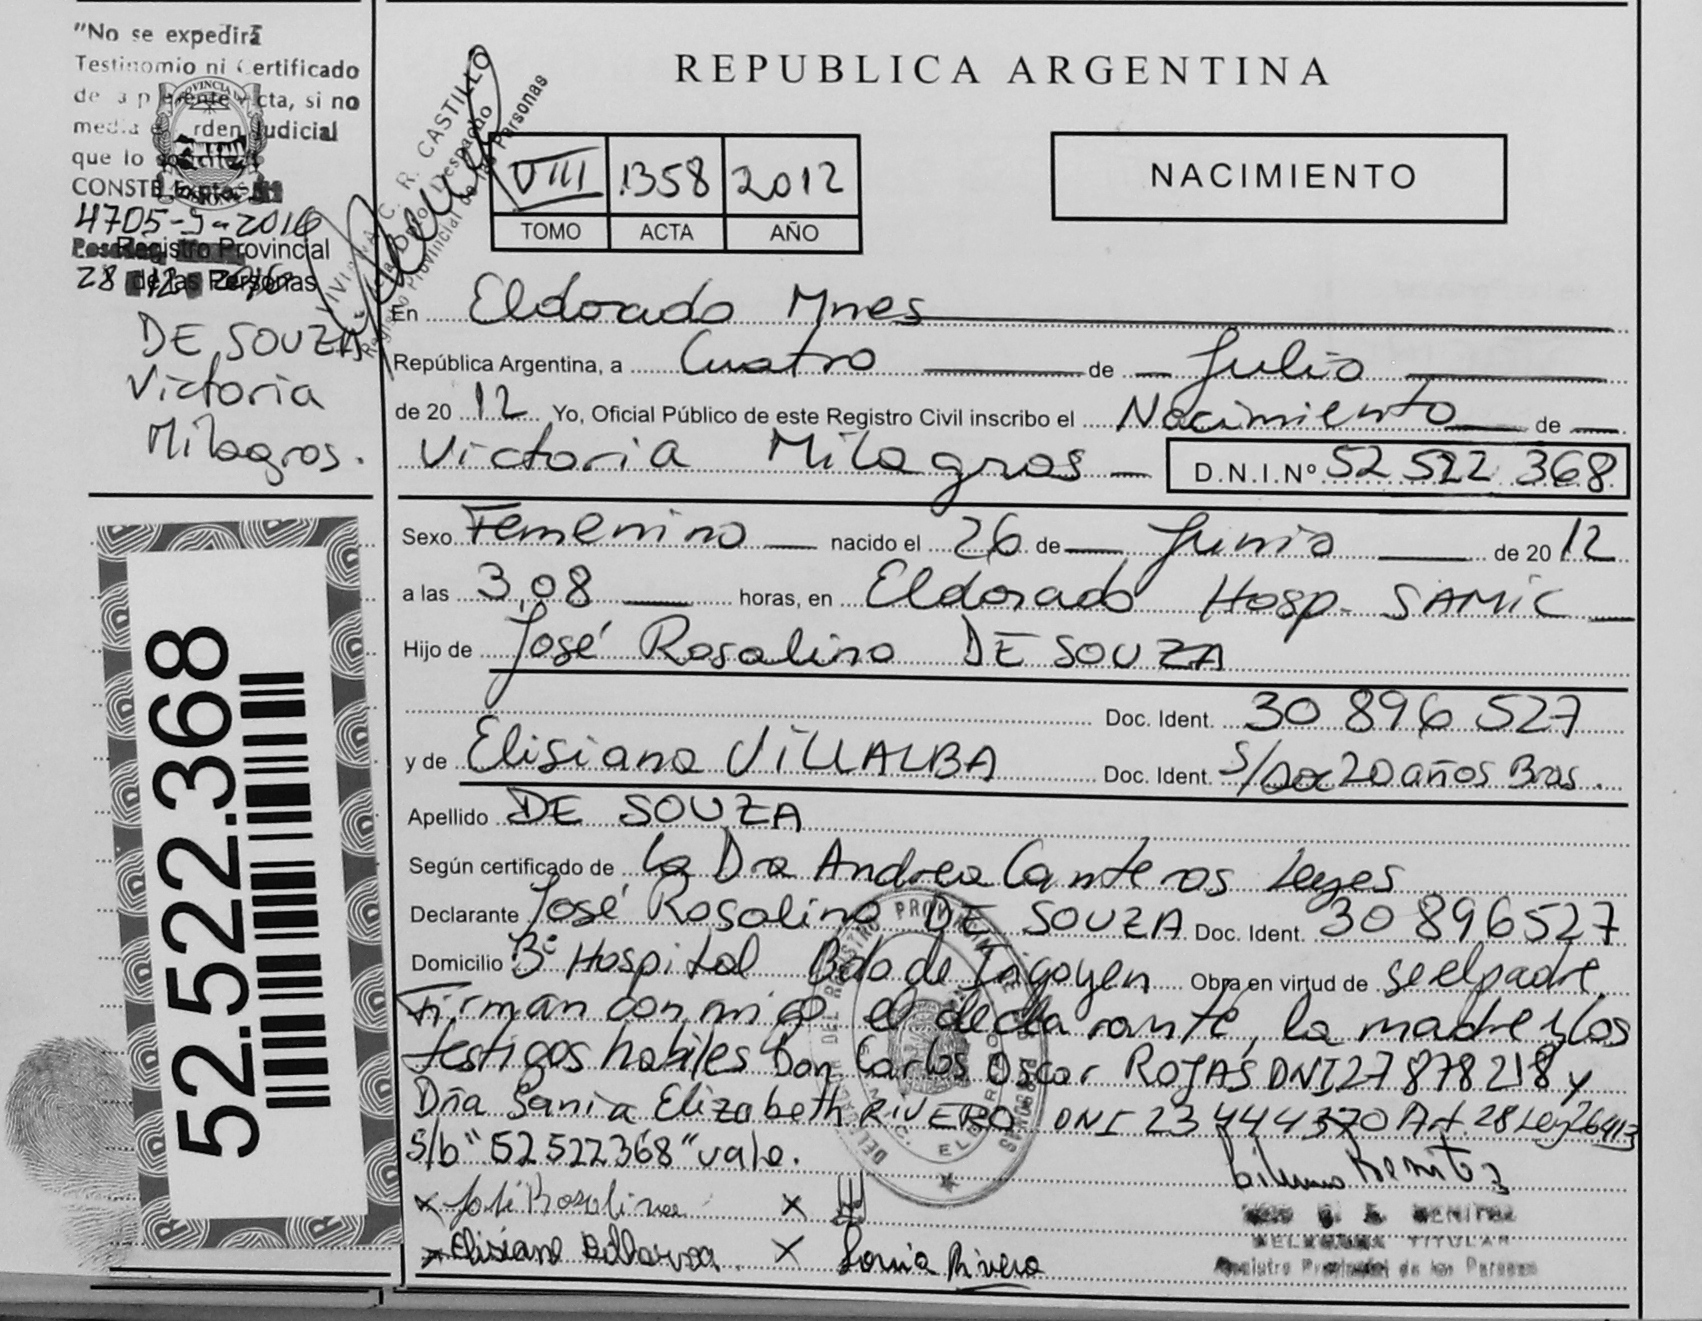 "No se expedirá
Testimonio ni Certificado
de la presente Acta, si no
media orden Judicial
que lo solicite
CONSTE Expte.
4705-J-2016
Registro Provincial
de las Personas
28 12 2016
DE SOUZA
Victoria
Milagros.
R. CASTILLO
Despacho
Registro Provincial de las Personas
REPUBLICA ARGENTINA
VIII 1358 2012
TOMO ACTA AÑO
NACIMIENTO
En Eldorado Mnes
República Argentina, a Cuatro de Julio
de 2012 Yo, Oficial Público de este Registro Civil inscribo el Nacimiento de
Victoria Milagros D.N.I.Nº 52 522 368
Sexo Femenino nacido el 26 de Junio de 2012
a las 3,08 horas, en Eldorado Hosp. SAMIC
Hijo de José Rosalino DE SOUZA
Doc. Ident. 30 896 527
y de Elisiana VILLALBA Doc. Ident. S/Doc 20 años Bras.
Apellido DE SOUZA
Según certificado de la Dra Andrea Canteros Leyes
Declarante José Rosalino DE SOUZA Doc. Ident. 30 896527
Domicilio Bº Hospital Bdo de Irigoyen Obra en virtud de ser el padre
Firman conmigo el declarante, la madre y los
testigos habiles Don Carlos Oscar ROJAS DNI 27 878 218 y
Dña Sania Elizabeth RIVERO DNI 23 444 370 Art. 28 Ley 26413
S/b "52 522368" vale.
52.522.368
José Rosalino
Elisiane
Sonia Rivero
Benitez
BENITEZ
TITULAR
Registro Provincial de las Personas